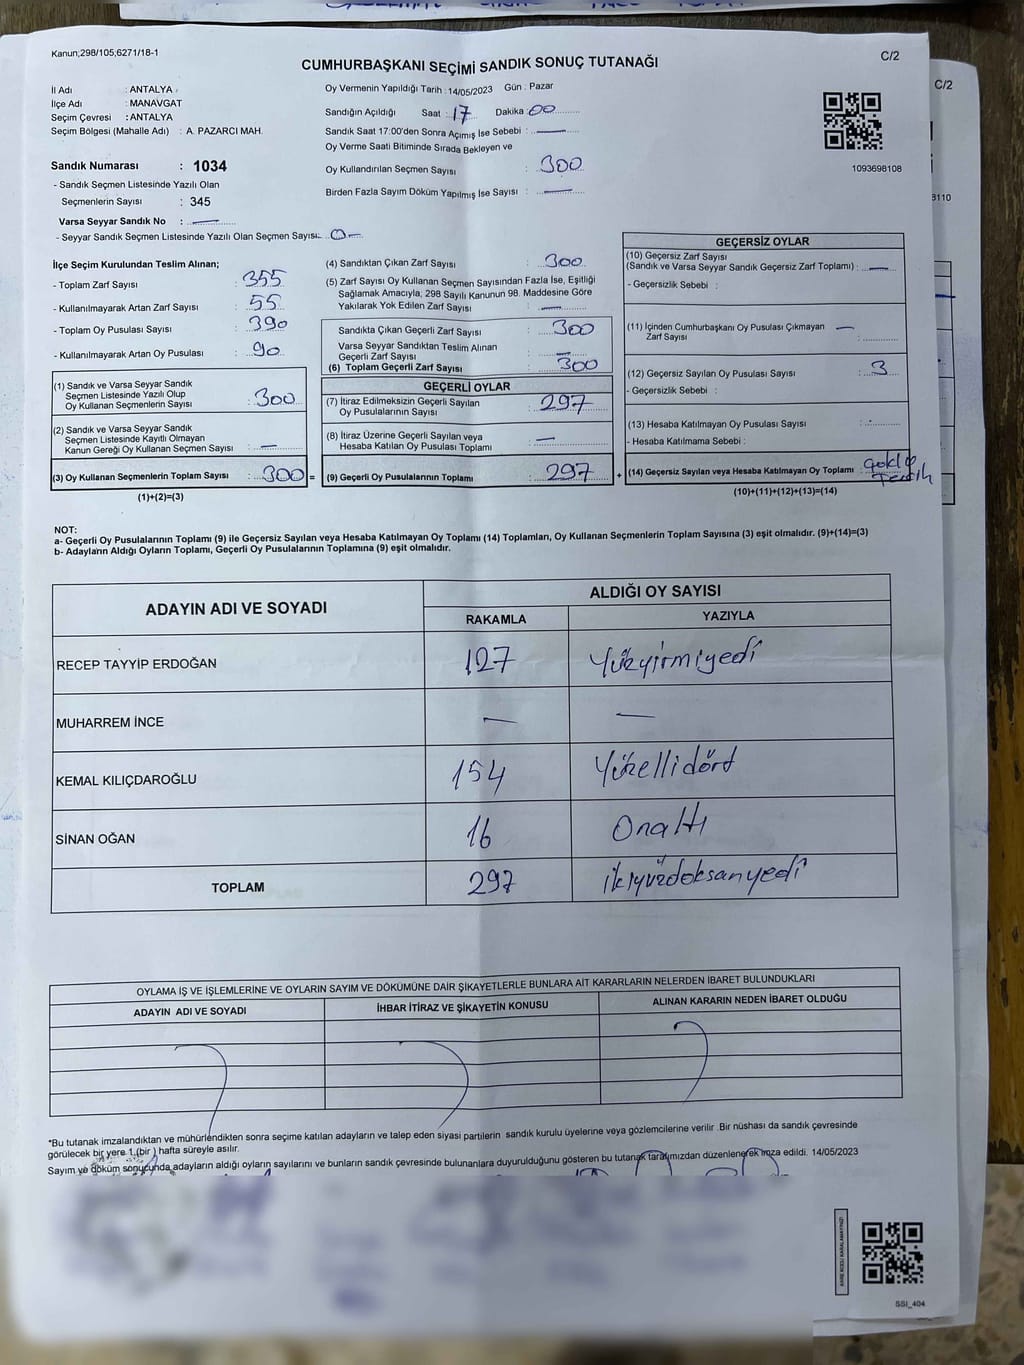 Kanun;298/105,6271/18-1
C/2
CUMHURBAŞKANI SEÇİMİ SANDIK SONUÇ TUTANAĞI
C/2
İl Adı : ANTALYA
İlçe Adı : MANAVGAT
Seçim Çevresi : ANTALYA
Seçim Bölgesi (Mahalle Adı) : A. PAZARCI MAH.
Oy Vermenin Yapıldığı Tarih : 14/05/2023 Gün : Pazar
Sandığın Açıldığı Saat : 17 Dakika : 00
Sandık Saat 17:00'den Sonra Açımış İse Sebebi : —
Oy Verme Saati Bitiminde Sırada Bekleyen ve
Oy Kullandırılan Seçmen Sayısı : 300
Birden Fazla Sayım Döküm Yapılmış İse Sayısı : —
1093698108
Sandık Numarası : 1034
- Sandık Seçmen Listesinde Yazılı Olan
Seçmenlerin Sayısı : 345
Varsa Seyyar Sandık No : —
- Seyyar Sandık Seçmen Listesinde Yazılı Olan Seçmen Sayısı: 0—
İlçe Seçim Kurulundan Teslim Alınan;
- Toplam Zarf Sayısı : 355
- Kullanılmayarak Artan Zarf Sayısı : 55
- Toplam Oy Pusulası Sayısı : 390
- Kullanılmayarak Artan Oy Pusulası : 90
(1) Sandık ve Varsa Seyyar Sandık
Seçmen Listesinde Yazılı Olup
Oy Kullanan Seçmenlerin Sayısı : 300
(2) Sandık ve Varsa Seyyar Sandık
Seçmen Listesinde Kayıtlı Olmayan
Kanun Gereği Oy Kullanan Seçmen Sayısı : —
(3) Oy Kullanan Seçmenlerin Toplam Sayısı : 300 =
(1)+(2)=(3)
(4) Sandıktan Çıkan Zarf Sayısı : 300
(5) Zarf Sayısı Oy Kullanan Seçmen Sayısından Fazla İse, Eşitliği
Sağlamak Amacıyla, 298 Sayılı Kanunun 98. Maddesine Göre
Yakılarak Yok Edilen Zarf Sayısı : —
Sandıkta Çıkan Geçerli Zarf Sayısı : 300
Varsa Seyyar Sandıktan Teslim Alınan
Geçerli Zarf Sayısı : —
(6) Toplam Geçerli Zarf Sayısı : 300
GEÇERLİ OYLAR
(7) İtiraz Edilmeksizin Geçerli Sayılan
Oy Pusulalarının Sayısı : 297
(8) İtiraz Üzerine Geçerli Sayılan veya
Hesaba Katılan Oy Pusulası Toplamı : —
(9) Geçerli Oy Pusulalarının Toplamı : 297 +
GEÇERSİZ OYLAR
(10) Geçersiz Zarf Sayısı
(Sandık ve Varsa Seyyar Sandık Geçersiz Zarf Toplamı) : —
- Geçersizlik Sebebi :
(11) İçinden Cumhurbaşkanı Oy Pusulası Çıkmayan —
Zarf Sayısı :
(12) Geçersiz Sayılan Oy Pusulası Sayısı : 3
- Geçersizlik Sebebi :
(13) Hesaba Katılmayan Oy Pusulası Sayısı :
- Hesaba Katılmama Sebebi :
(14) Geçersiz Sayılan veya Hesaba Katılmayan Oy Toplamı :
(10)+(11)+(12)+(13)=(14)
NOT:
a- Geçerli Oy Pusulalarının Toplamı (9) ile Geçersiz Sayılan veya Hesaba Katılmayan Oy Toplamı (14) Toplamları, Oy Kullanan Seçmenlerin Toplam Sayısına (3) eşit olmalıdır. (9)+(14)=(3)
b- Adayların Aldığı Oyların Toplamı, Geçerli Oy Pusulalarının Toplamına (9) eşit olmalıdır.
ADAYIN ADI VE SOYADI
ALDIĞI OY SAYISI
RAKAMLA YAZIYLA
RECEP TAYYİP ERDOĞAN 127 Yüzyirmiyedi
MUHARREM İNCE — —
KEMAL KILIÇDAROĞLU 154 Yüzellidört
SİNAN OĞAN 16 Onaltı
TOPLAM 297 ikiyüzdoksanyedi
OYLAMA İŞ VE İŞLEMLERİNE VE OYLARIN SAYIM VE DÖKÜMÜNE DAİR ŞİKAYETLERLE BUNLARA AİT KARARLARIN NELERDEN İBARET BULUNDUKLARI
ADAYIN ADI VE SOYADI İHBAR İTİRAZ VE ŞİKAYETİN KONUSU ALINAN KARARIN NEDEN İBARET OLDUĞU
*Bu tutanak imzalandıktan ve mühürlendikten sonra seçime katılan adayların ve talep eden siyasi partilerin sandık kurulu üyelerine veya gözlemcilerine verilir .Bir nüshası da sandık çevresinde
görülecek bir yere 1 (bir ) hafta süreyle asılır.
Sayım ve döküm sonucunda adayların aldığı oyların sayılarını ve bunların sandık çevresinde bulunanlara duyurulduğunu gösteren bu tutanak tarafımızdan düzenlenerek imza edildi. 14/05/2023
SSI_404